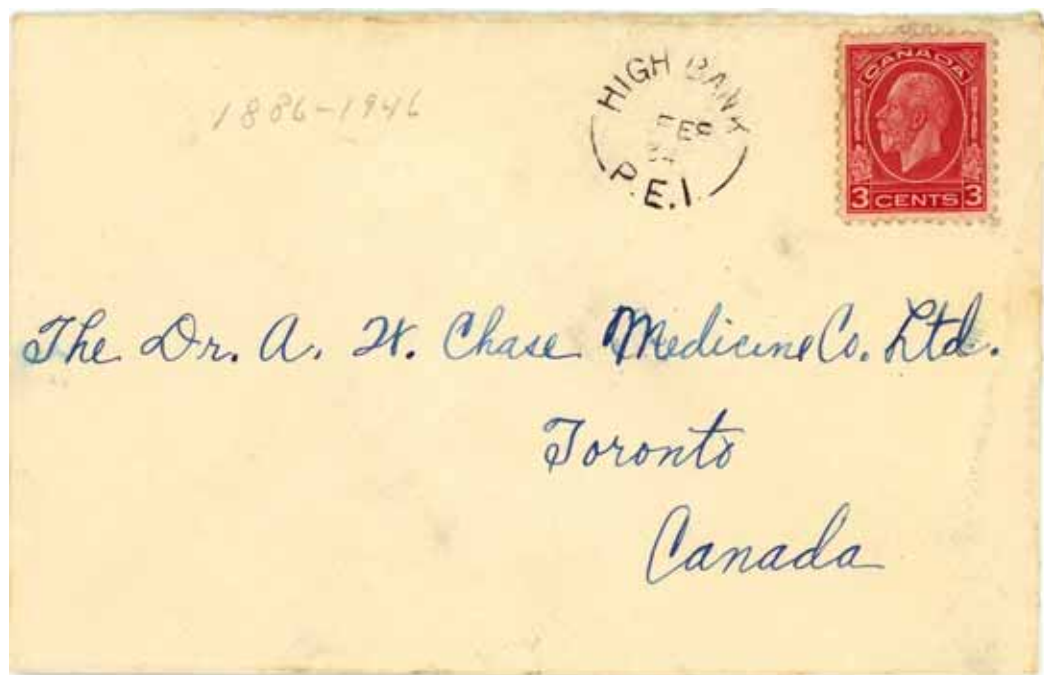 1886-1946
HIGH BANK
FEB
P.E.I.
CANADA
3 CENTS 3
The Dr. A. W. Chase Medicine Co. Ltd.
Toronto
Canada